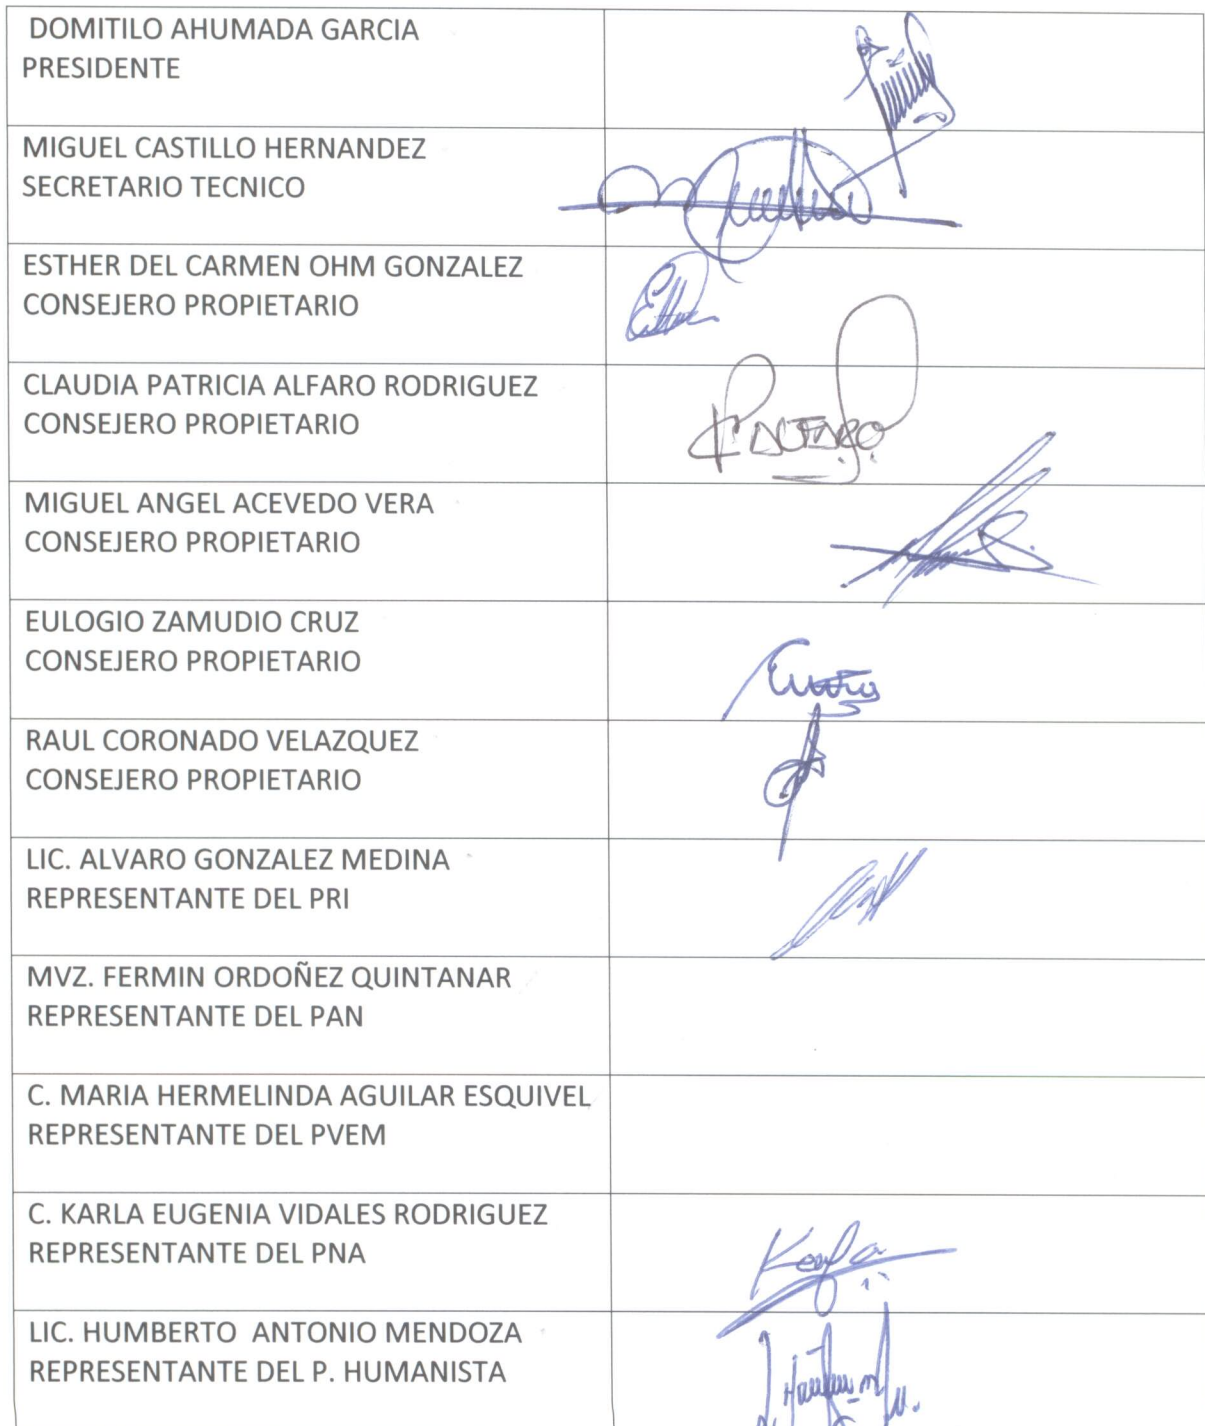 DOMITILO AHUMADA GARCIA
PRESIDENTE
MIGUEL CASTILLO HERNANDEZ
SECRETARIO TECNICO
ESTHER DEL CARMEN OHM GONZALEZ
CONSEJERO PROPIETARIO
CLAUDIA PATRICIA ALFARO RODRIGUEZ
CONSEJERO PROPIETARIO
MIGUEL ANGEL ACEVEDO VERA
CONSEJERO PROPIETARIO
EULOGIO ZAMUDIO CRUZ
CONSEJERO PROPIETARIO
RAUL CORONADO VELAZQUEZ
CONSEJERO PROPIETARIO
LIC. ALVARO GONZALEZ MEDINA
REPRESENTANTE DEL PRI
MVZ. FERMIN ORDOÑEZ QUINTANAR
REPRESENTANTE DEL PAN
C. MARIA HERMELINDA AGUILAR ESQUIVEL
REPRESENTANTE DEL PVEM
C. KARLA EUGENIA VIDALES RODRIGUEZ
REPRESENTANTE DEL PNA
Karla
LIC. HUMBERTO ANTONIO MENDOZA
REPRESENTANTE DEL P. HUMANISTA